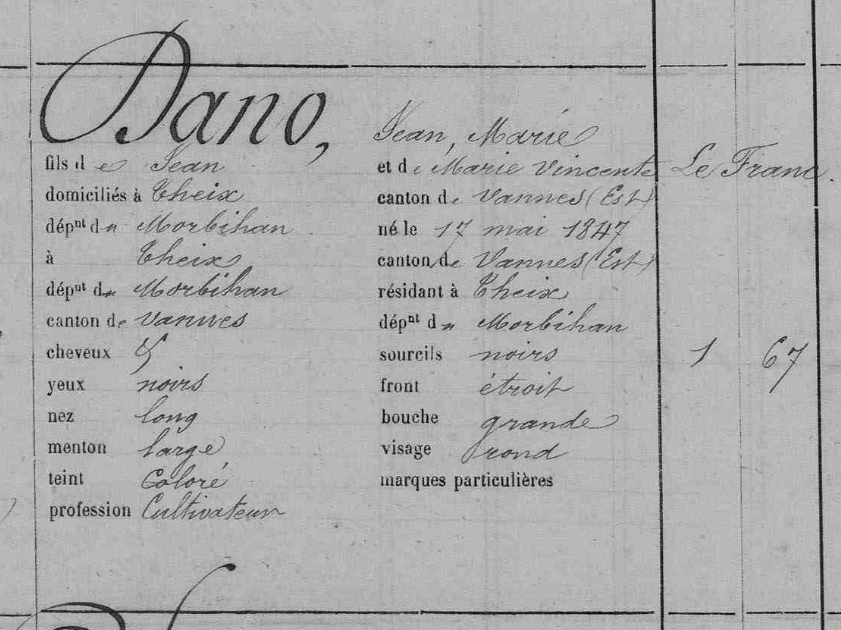 Dano, Jean, Marie
fils de Jean et de Marie Vincente Le Franc.
domiciliés à Theix canton de Vannes (Est)
dépnt du Morbihan né le 17 mai 1847
à Theix canton de Vannes (Est)
dépnt du Morbihan résidant à Theix
canton de Vannes dépnt du Morbihan
cheveux & sourcils noirs 1 67
yeux noirs front étroit
nez long bouche grande
menton large visage rond
teint Coloré marques particulières
profession Cultivateur